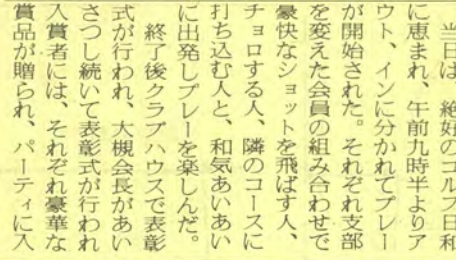 当日は、絶好のゴルフ日和
に恵まれ、午前九時半よりア
ウト、インに分かれてプレー
が開始された。それぞれ支部
を変えた会員の組み合わせで
豪快なショットを飛ばす人、
チョロする人、隣のコースに
打ち込む人と、和気あいあい
に出発しプレーを楽しんだ。
終了後クラブハウスで表彰
式が行われ、大槻会長があい
さつし続いて表彰式が行われ
入賞者には、それぞれ豪華な
賞品が贈られ、パーティに入